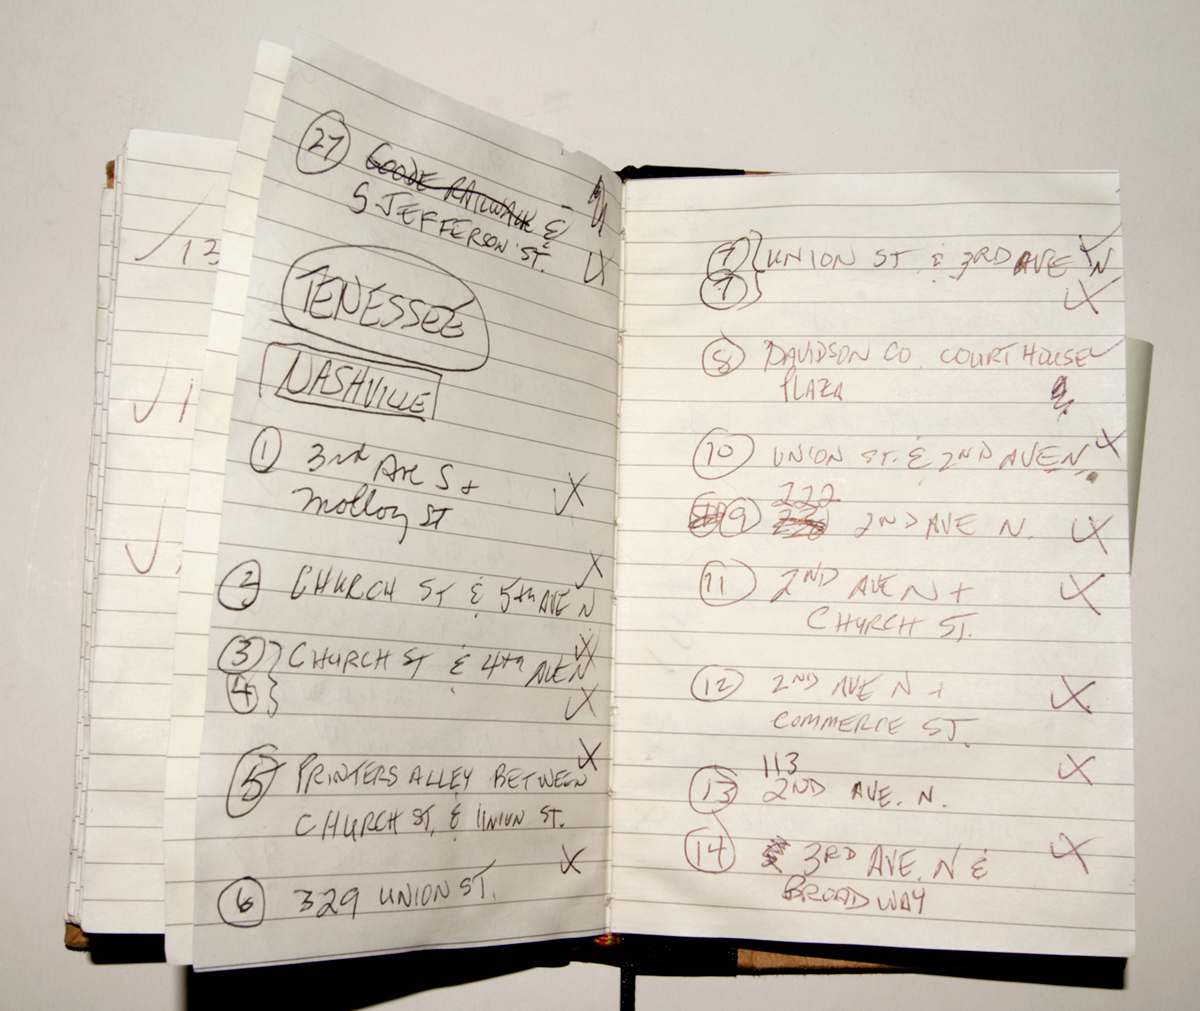 13
1
27 GOODE RAILWALK &
S JEFFERSON ST.
TENESSEE
NASHVILLE
1 3rd Ave S +
Molloy ST
2 CHURCH ST & 5th AVE N
3 CHURCH ST & 4th AVE N
4
5 PRINTERS ALLEY BETWEEN
CHURCH ST, & UNION ST.
6 329 UNION ST.
7 UNION ST & 3RD AVE N
7
8 DAVIDSON CO. COURTHOUSE
PLAZA
10 UNION ST. & 2ND AVE N.
222
9 2ND AVE N.
11 2ND AVE N +
CHURCH ST.
12 2ND AVE N +
COMMERCE ST.
113
13 2ND AVE. N.
14 3RD AVE. N &
BROADWAY